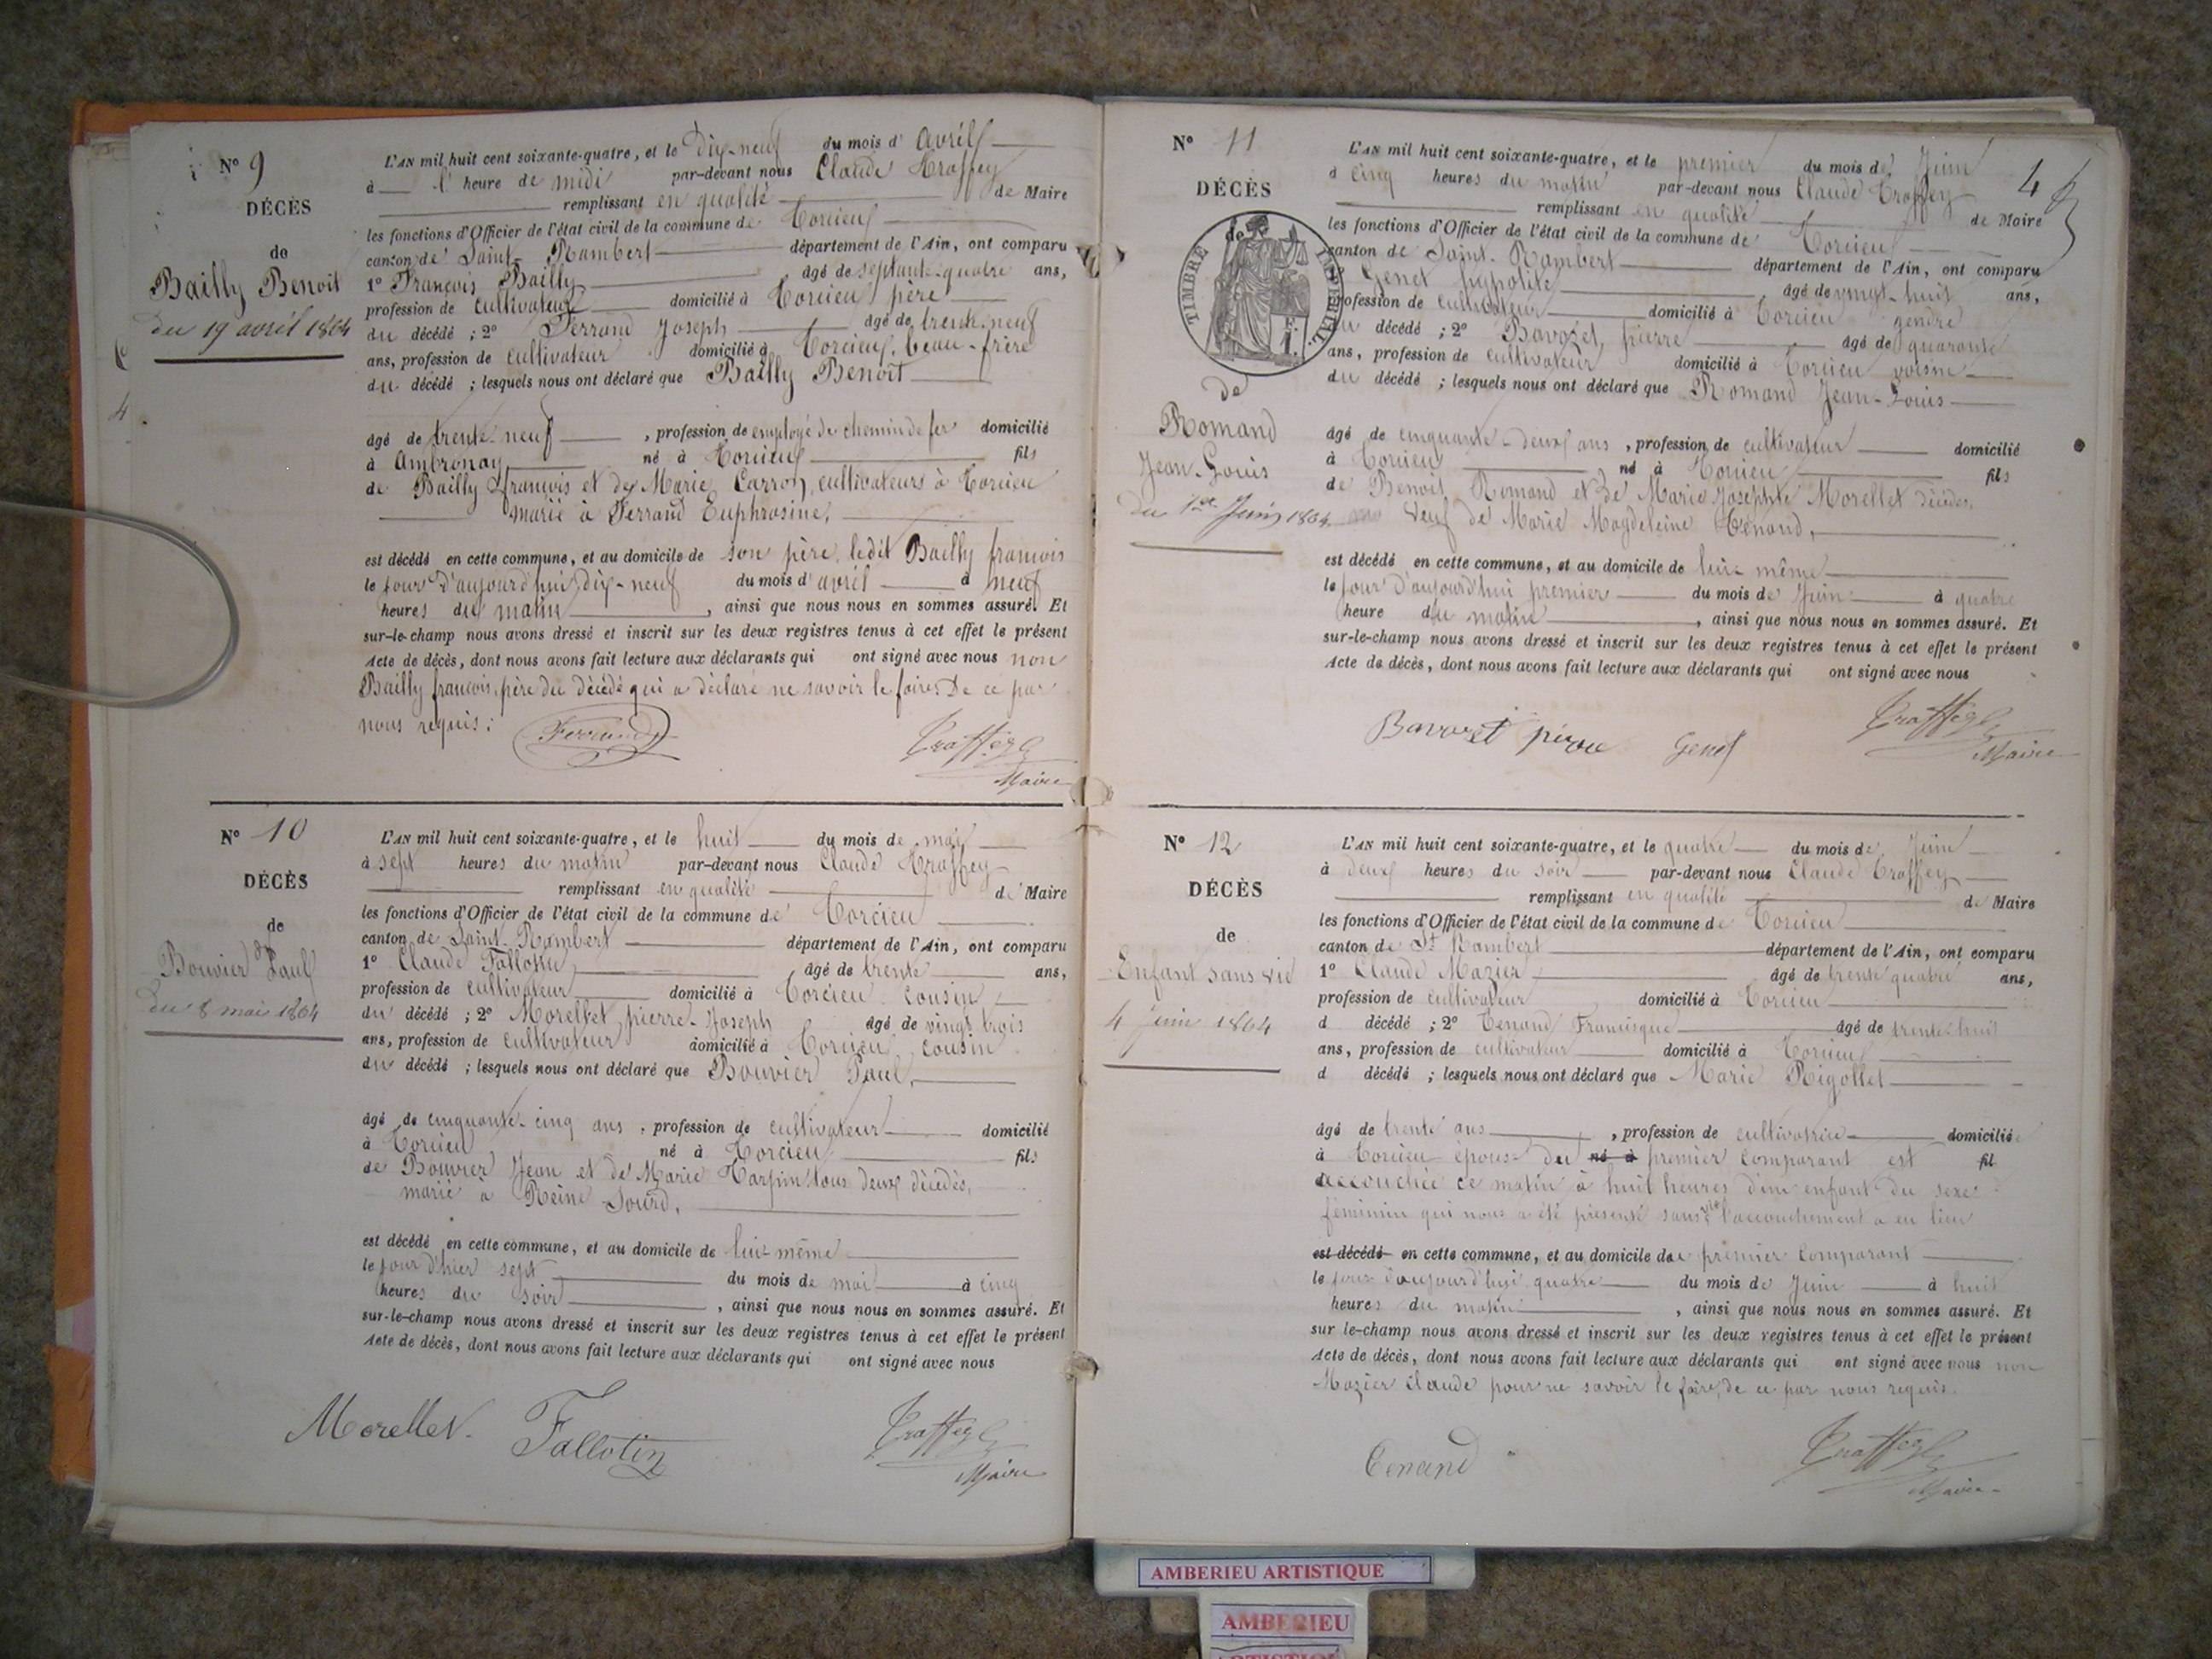 N° 9
DÉCÈS
de
Bailly Benoit
du 19 avril 1864
4
L'AN mil huit cent soixante-quatre, et le dix-neuf du mois d'avril
à l'heure de midi par-devant nous Claude Traffey
remplissant en qualité de Maire
les fonctions d'Officier de l'état civil de la commune de Torcieu
canton de Saint-Rambert département de l'Ain, ont comparu
1° François Bailly âgé de septante-quatre ans,
profession de cultivateur domicilié à Torcieu père
du décédé ; 2° Ferrand Joseph âgé de trente-neuf
ans, profession de cultivateur domicilié à Torcieu, beau-frère
du décédé ; lesquels nous ont déclaré que Bailly Benoit
âgé de trente-neuf , profession de employé de chemin de fer domicilié
à Ambronay né à Torcieu fils
de Bailly françois et de Marie Carron, cultivateurs à Torcieu
marié à Ferrand Euphrosine,
est décédé en cette commune, et au domicile de son père, ledit Bailly françois
le jour d'aujourd'hui dix-neuf du mois d'avril à neuf
heures du matin , ainsi que nous nous en sommes assuré. Et
sur-le-champ nous avons dressé et inscrit sur les deux registres tenus à cet effet le présent
Acte de décès, dont nous avons fait lecture aux déclarants qui ont signé avec nous non
Bailly françois, père du décédé qui a déclaré ne savoir le faire De ce par
nous requis :
Ferrand
Traffey
Maire
N° 10
DÉCÈS
de
Bouvier Paul
du 8 mai 1864
L'AN mil huit cent soixante-quatre, et le huit du mois de mai
à sept heures du matin par-devant nous Claude Traffey
remplissant en qualité de Maire
les fonctions d'Officier de l'état civil de la commune de Torcieu
canton de Saint-Rambert département de l'Ain, ont comparu
1° Claude Fallotin âgé de trente ans,
profession de cultivateur domicilié à Torcieu cousin
du décédé ; 2° Morellet pierre-Joseph âgé de vingt trois
ans, profession de cultivateur domicilié à Torcieu cousin
du décédé ; lesquels nous ont déclaré que Bouvier Paul,
âgé de cinquante-cinq ans , profession de cultivateur domicilié
à Torcieu né à Torcieu fils
de Bouvier Jean et de Marie Tarpin tous deux décédés,
marié à Reine Sourd,
est décédé en cette commune, et au domicile de lui-même
le jour d'hier sept du mois de mai à cinq
heures du soir , ainsi que nous nous en sommes assuré. Et
sur-le-champ nous avons dressé et inscrit sur les deux registres tenus à cet effet le présent
Acte de décès, dont nous avons fait lecture aux déclarants qui ont signé avec nous
Morellet Fallotin
Traffey
Maire
N° 11
DÉCÈS
de
TIMBRE IMPÉRIAL
de
Romand
Jean-Louis
du 1er Juin 1864
4
L'AN mil huit cent soixante-quatre, et le premier du mois de Juin
à cinq heures du matin par-devant nous Claude Traffey
remplissant en qualité de Maire
les fonctions d'Officier de l'état civil de la commune de Torcieu
canton de Saint-Rambert département de l'Ain, ont comparu
1° Genet hypolite âgé de vingt-huit ans,
profession de cultivateur domicilié à Torcieu gendre
du décédé ; 2° Bavozet, pierre âgé de quarante
ans, profession de cultivateur domicilié à Torcieu voisin
du décédé ; lesquels nous ont déclaré que Romand Jean-Louis
âgé de cinquante-deux ans , profession de cultivateur domicilié
à Torcieu né à Torcieu fils
de Benoit Romand et de Marie Josephte Morellet décédés,
veuf de Marie Magdeleine Tenand,
est décédé en cette commune, et au domicile de lui-même
le jour d'aujourd'hui premier du mois de Juin à quatre
heure du matin , ainsi que nous nous en sommes assuré. Et
sur-le-champ nous avons dressé et inscrit sur les deux registres tenus à cet effet le présent
Acte de décès, dont nous avons fait lecture aux déclarants qui ont signé avec nous
Bavozet pierre Genet
Traffey
Maire
N° 12
DÉCÈS
de
Enfant sans vie
4 juin 1864
L'AN mil huit cent soixante-quatre, et le quatre du mois de Juin
à deux heures du soir par-devant nous Claude Traffey
remplissant en qualité de Maire
les fonctions d'Officier de l'état civil de la commune de Torcieu
canton de St Rambert département de l'Ain, ont comparu
1° Claude Mazier âgé de trente quatre ans,
profession de cultivateur domicilié à Torcieu
d décédé ; 2° Tenand Francisque âgé de trente huit
ans, profession de cultivateur domicilié à Torcieu
d décédé ; lesquels nous ont déclaré que Marie Rigollet
âgé de trente ans , profession de cultivatrice domiciliée
à Torcieu épouse du né à premier comparant est fil
accouchée ce matin à huit heures d'un enfant du sexe
féminin qui nous a été présenté sans vie l'accouchement a eu lieu
est décédé en cette commune, et au domicile du premier comparant
le jour d'aujourd'hui quatre du mois de Juin à huit
heures du matin , ainsi que nous nous en sommes assuré. Et
sur le-champ nous avons dressé et inscrit sur les deux registres tenus à cet effet le présent
Acte de décès, dont nous avons fait lecture aux déclarants qui ont signé avec nous non
Mazier claude pour ne savoir le faire, de ce par nous requis.
Tenand
Traffey
Maire
AMBERIEU ARTISTIQUE
AMBERIEU
ARTISTIQUE